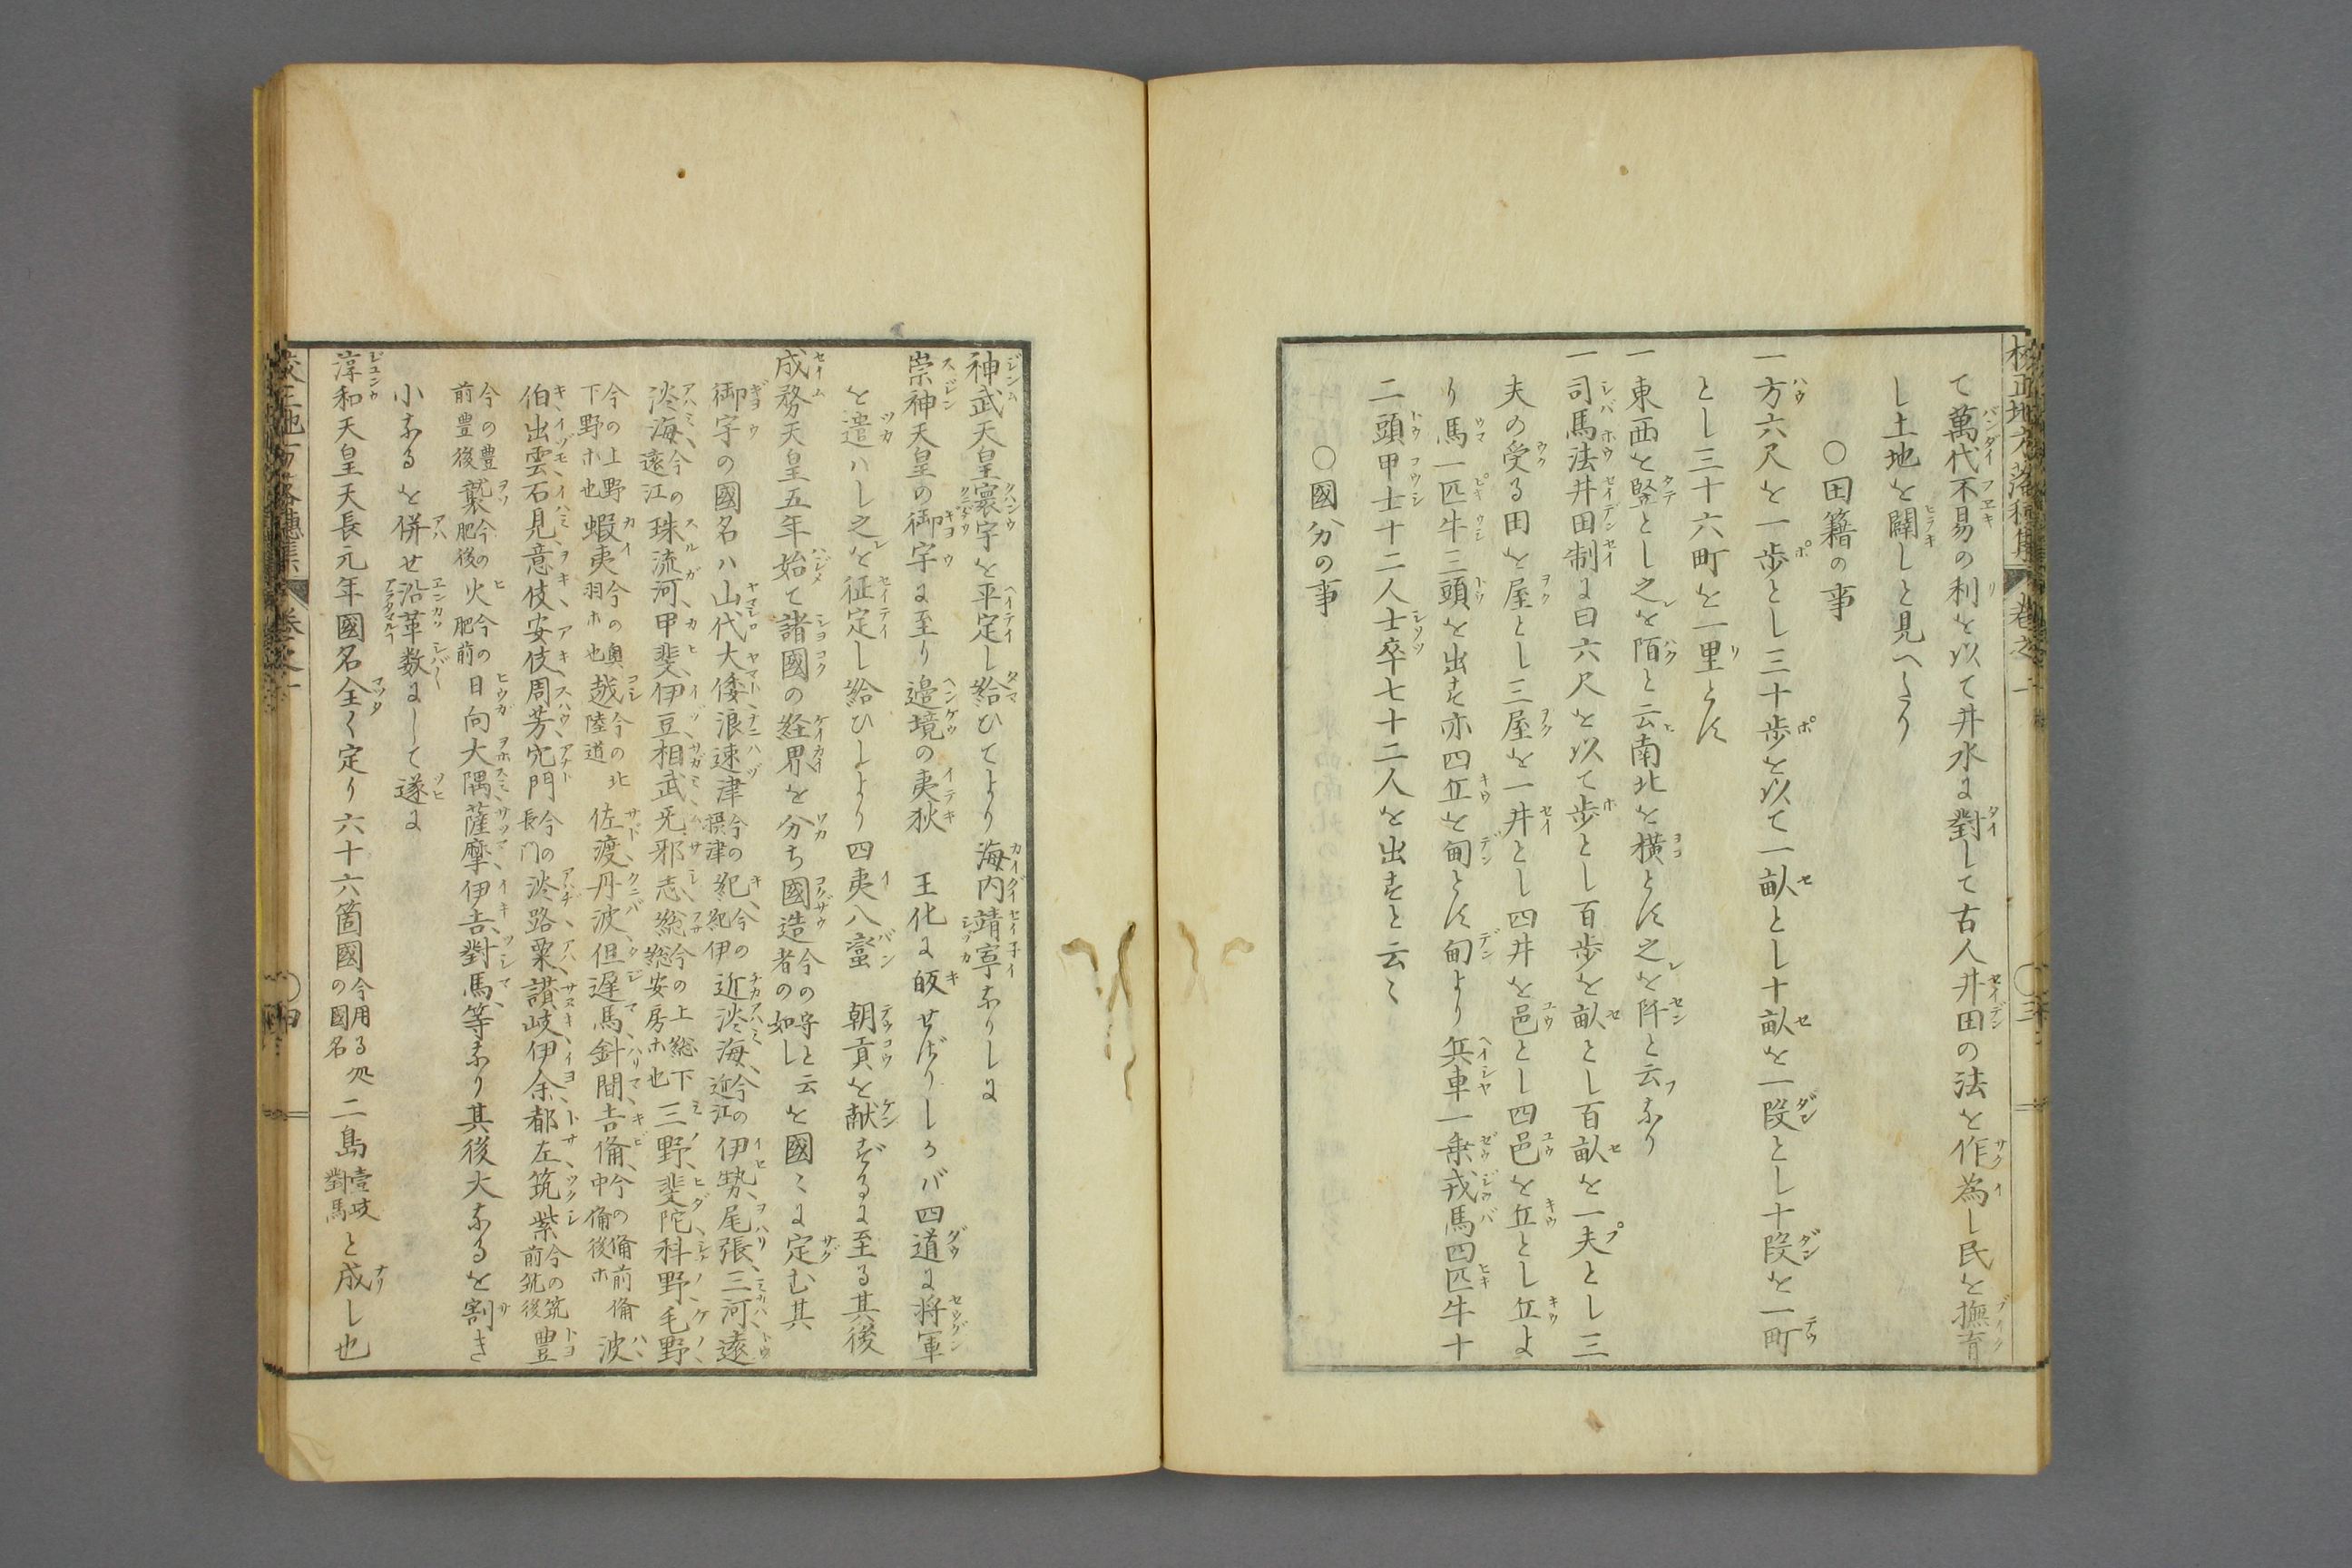 て萬代不易の利を以て井水に對して古人井田の法を作為し民を撫育
し土地を闢しと見へたり
○田籍の事
一方六尺を一歩とし三十歩を以て一畝とし十畝を一段とし十段を一町
とし三十六町を一里とす
一東西を竪とし之を陌と云南北を横とす之を阡と云ふなり
一司馬法井田制に曰六尺を以て歩とし百歩を畝とし百畝を一夫とし三
夫の受る田を屋とし三屋を一井とし四井を邑とし四邑を丘とし丘よ
り馬一匹牛三頭を出す亦四丘を甸とす甸より兵車一乗戎馬四匹牛十
二頭甲士十二人士卒七十二人を出すと云〻
○國分の事
神武天皇寰宇を平定し給ひてより海内靖寧なりしに
崇神天皇の御宇に至り邉境の夷狄 王化に皈せざりしかバ四道に将軍
を遣ハし之を征定し給ひしより四夷八蠻 朝貢を献ずるに至る其後
成務天皇五年始て諸國の経界を分ち國造今の守と云者の如しを國〻に定む其
御宇の國名ハ山代大倭、浪速津今の摂津紀、今の紀伊近淡海、今の近江伊勢、尾張、三河、遠
淡海、今の遠江珠流河、甲斐、伊豆、相武、无邪志、総今の上総下総安房ホ也三野、斐陀、科野、毛野、
今の上野下野ホ也蝦夷今の奥羽ホ也越今の北陸道佐渡、丹波、但遅馬、針間、吉備、今の備前備中備後ホ波
伯、出雲、石見、意伎、安伎、周芳、穴門今の長門淡路、粟、讃岐、伊余、都左、筑紫今の筑前筑後豊
今の豊前豊後襲今の肥後火今の肥前日向、大隅、薩摩、伊吉、對馬、等なり其後大なるを割き
小なるを併せ沿革数〻して遂に
淳和天皇天長元年國名全く定り六十六箇國今用る処の國名二島壹岐對馬と成し也